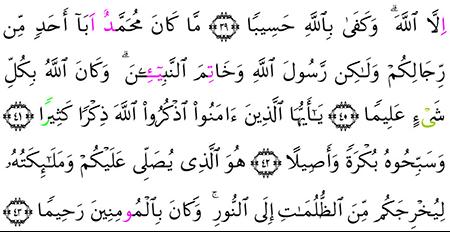 اِلَّا اللَّهَ ۗ وَكَفَىٰ بِاللَّهِ حَسِيبًا ﴿٣٩﴾ مَّا كَانَ مُحَمَّدُ اَبَآ أَحَدٍ مِّن
رِّجَالِكُمْ وَلَٰكِن رَّسُولَ اللَّهِ وَخَاتِمَ النَّبِيٓـِٕنَ ۗ وَكَانَ اللَّهُ بِكُلِّ
شَيْءٍ عَلِيمًا ﴿٤٠﴾ يَٰٓأَيُّهَا الَّذِينَ ءَامَنُوا اذْكُرُوا اللَّهَ ذِكْرًا كَثِيرًا ﴿٤١﴾
وَسَبِّحُوهُ بُكْرَةً وَأَصِيلًا ﴿٤٢﴾ هُوَ الَّذِي يُصَلِّي عَلَيْكُمْ وَمَلَٰٓئِكَتُهُۥ
لِيُخْرِجَكُم مِّنَ الظُّلُمَٰتِ إِلَى النُّورِ ۚ وَكَانَ بِالْمُومِنِينَ رَحِيمًا ﴿٤٣﴾